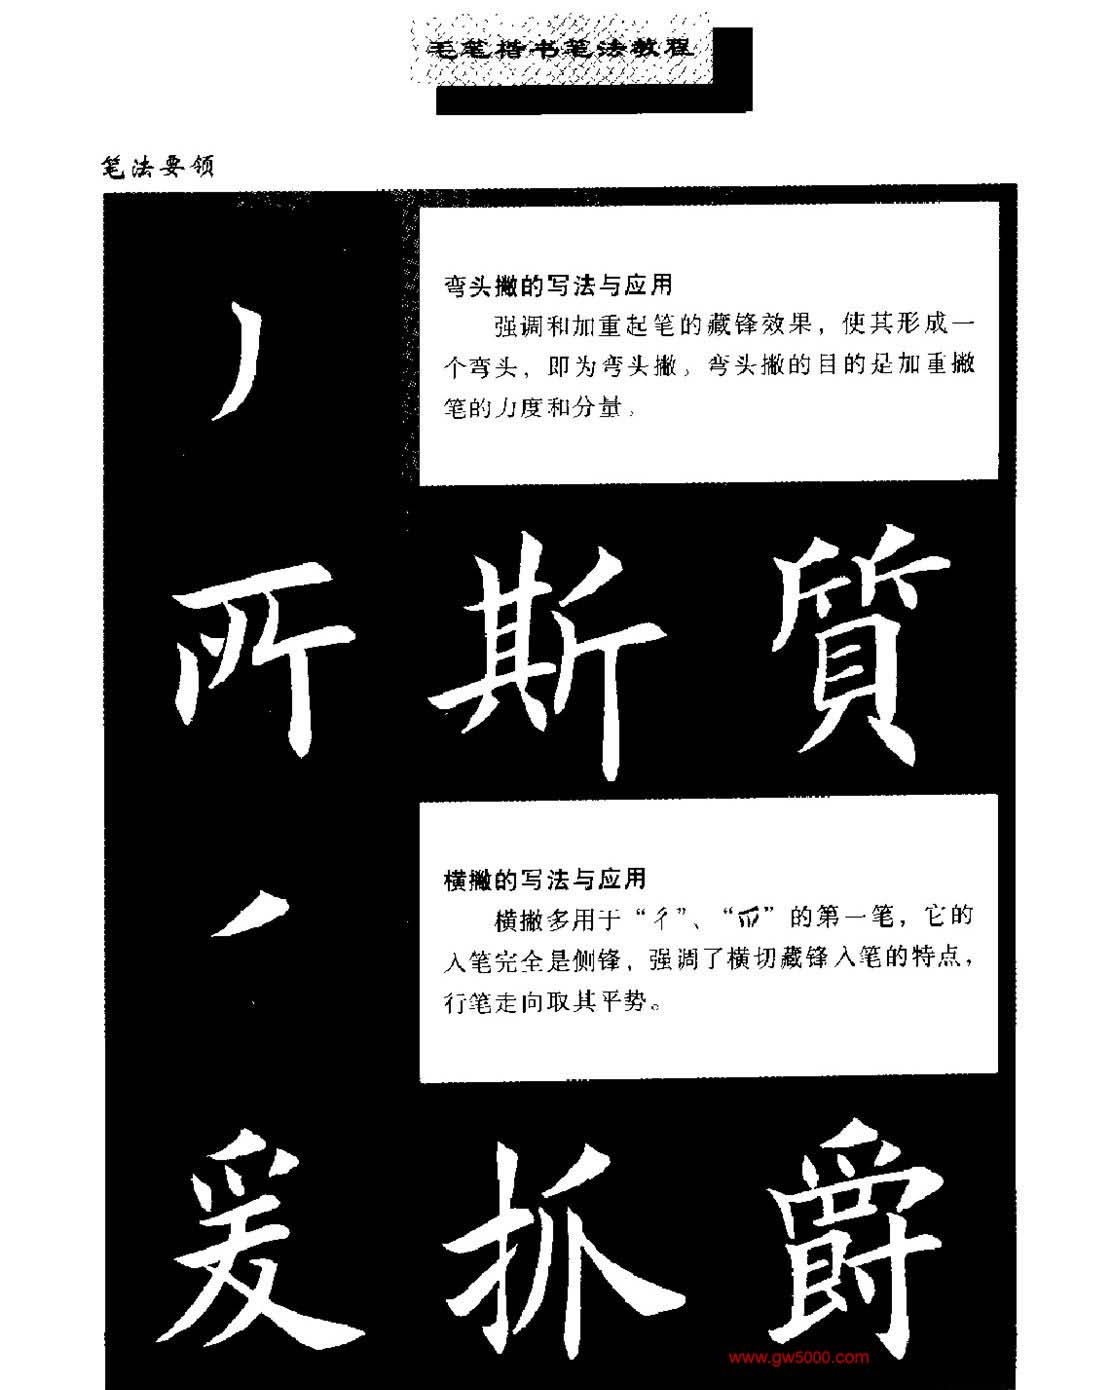 毛笔楷书笔法教程
笔法要领
弯头撇的写法与应用
强调和加重起笔的藏锋效果，使其形成一
个弯头，即为弯头撇。弯头撇的目的是加重撇
笔的力度和分量。
所 斯 質
横撇的写法与应用
横撇多用于“彳”、“爫”的第一笔，它的
入笔完全是侧锋，强调了横切藏锋入笔的特点，
行笔走向取其平势。
爰 抓 爵
www.gw5000.com